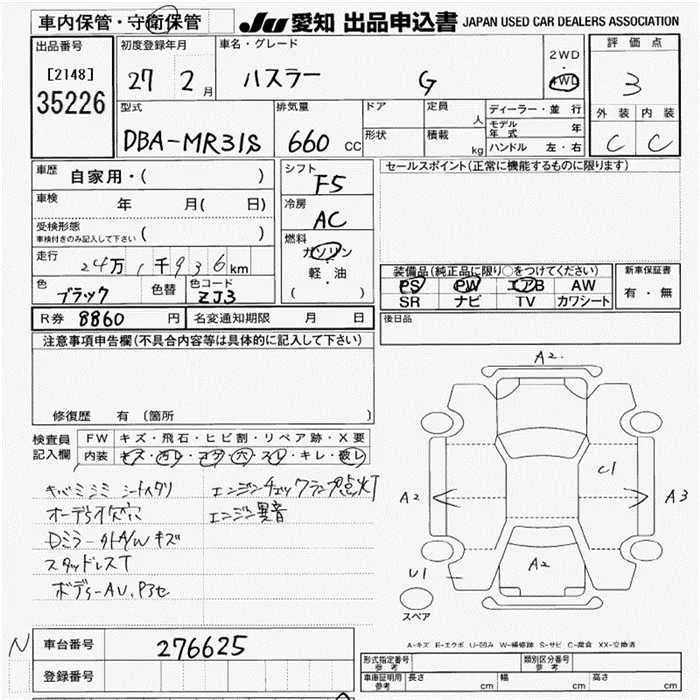 車内保管・守衛保管
JU 愛知 出品申込書 JAPAN USED CAR DEALERS ASSOCIATION
出品番号
[2148]
35226
初度登録年月
27 2 月
車名・グレード
ハスラー G
2WD
・
4WD
評価点
3
外装 内装
C C
型式
DBA-MR31S
排気量
660 CC
ドア
形状
定員 人
積載 kg
ディーラー・並行
モデル年式 年
ハンドル 左・右
車歴 自家用・( )
車検 年 月( 日)
受検形態
車検付きのみ記入して下さい ( )
走行 24万1千936km
色 ブラック 色替 色コード ZJ3
シフト
F5
冷房
AC
燃料
ガソリン
軽・油
( )
セールスポイント(正常に機能するものに限ります)
装備品(純正品に限り○をつけてください)
PS PW エアB AW
SR ナビ TV カワシート
新車保証書
有・無
R券 8860 円 名変通知期限 月 日
後日品
注意事項申告欄(不具合内容等は具体的に記入して下さい)
修復歴 有 (箇所 )
検査員記入欄
FW キズ・飛石・ヒビ割・リペア跡・X要
内装 キズ・汚レ・コゲ・穴・スレ・キレ・破レ
エンジンチェックランプ点灯
エンジン異音
Dミラー外A/Wキズ
スタッドレスT
A2.
A2
C1
A3
A2
U1
スペア
A-キズ E-エクボ U-凹み W-補修跡 S-サビ C-腐食 XX-交換済
N
車台番号 276625
登録番号
形式指定番号 参考 類別区分番号 参考
車庫証明用 参考 長さ cm 幅 cm 高さ cm